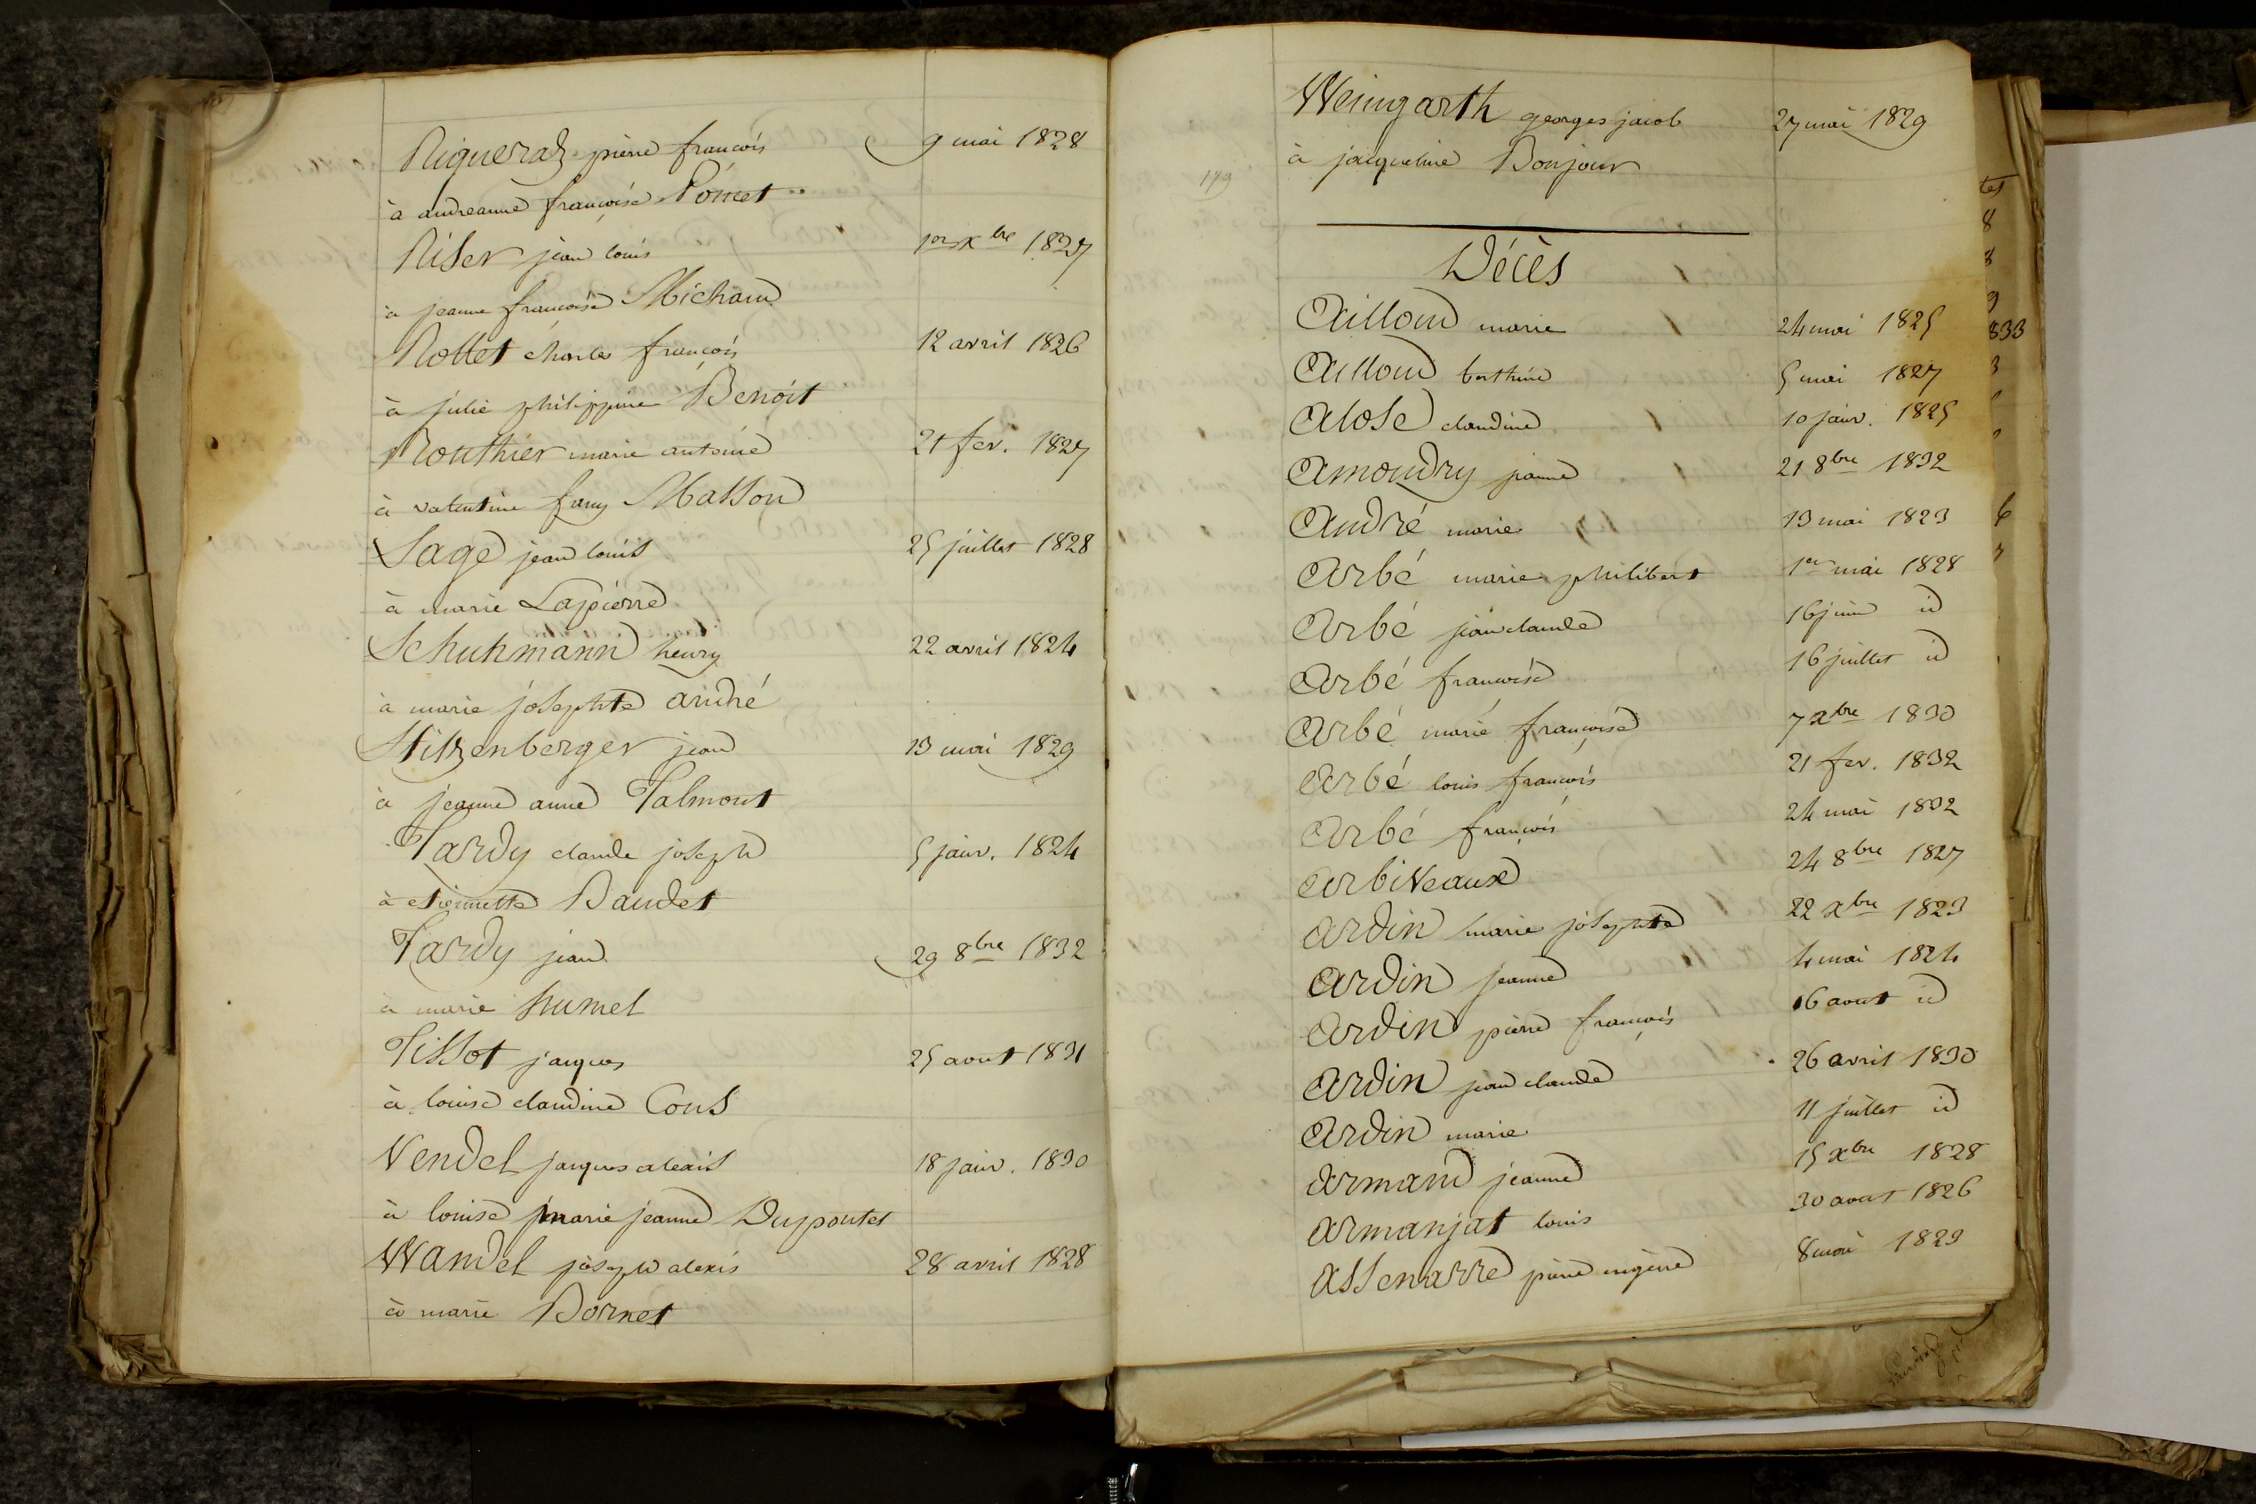 Riqueraz pierre francois 9 mai 1828
à andreanne francoise Poncet
Riser jean louis 1er xbre 1827
à jeanne francoise Michaud
Rollet charles francois 12 avril 1826
à julie philippine Benoit
Routhier marie antoine 21 fev. 1827
à valentine fany Masson
Sage jean louis 25 juillet 1828
à marie Lapierre
Schuhmann henry 22 avril 1824
à marie josephte andré
Stitzenberger jean 13 mai 1829
à jeanne anne Talmont
Tardy claude joseph 5 janv. 1824
à etiennette Baudet
Tardy jean 29 8bre 1832
à marie humel
Tissot jacques 25 aout 1831
à louise claudine Cous
Vendel jacques alexis 18 janv. 1830
à louise marie jeanne Dupontet
Wandel joseph alexis 28 avril 1828
à marie Dornet
Weingarth georges jacob 27 mai 1829
à jacqueline Bonjour
179
Décès
Ailloud marie 24 mai 1825
Ailloud berthine 5 mai 1827
Alose claudine 10 janv. 1825
Amoudry jeanne 21 8bre 1832
André marie 13 mai 1823
Arbé marie philibert 1er mai 1828
Arbé jean claude 16 juin id
Arbé francoise 16 juillet id
Arbé marie francoise 7 xbre 1830
Arbé louis francois 21 fev. 1832
Arbé francois 24 mai 1832
Arbiveaux 24 8bre 1827
Ardin marie josephte 22 xbre 1823
Ardin jeanne 4 mai 1824
Ardin pierre francois 16 aout id
Ardin jean claude 26 avril 1830
Ardin marie 11 juillet id
Armand jeanne 15 xbre 1828
Armanjat louis 30 aout 1826
Assenarre pierre 8 mai 1823
tes
8
8
9
833
3